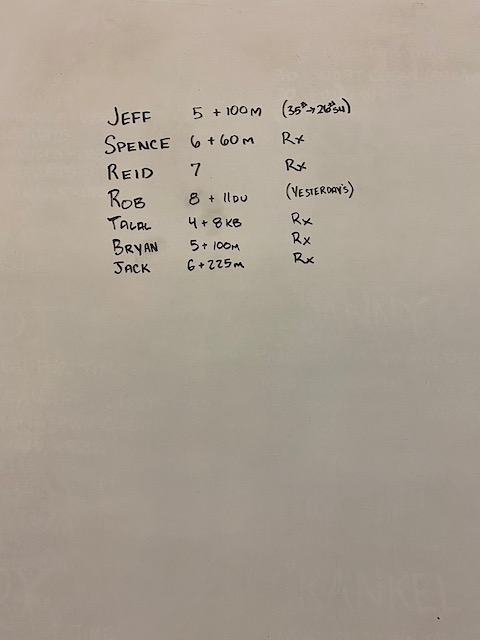 JEFF 5 + 100M (35#→26#SU)
SPENCE 6 + 60M Rx
REID 7 Rx
ROB 8 + 11DU (YESTERDAY'S)
TALAL 4 + 8KB Rx
BRYAN 5 + 100M Rx
JACK 6 + 225M Rx
KANKEL